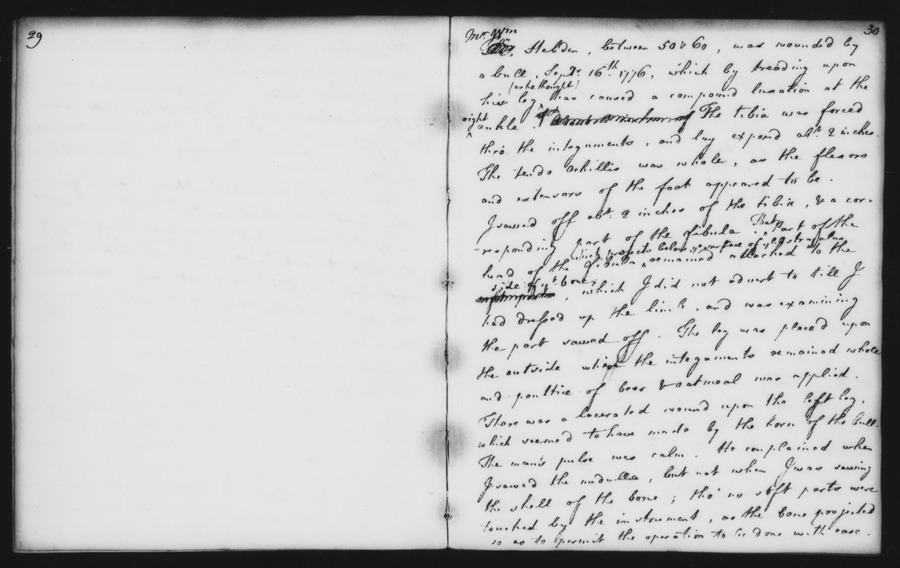 29
30
Mr. Wm
Hebden, between 50 & 60, was wounded by
a bull, Sepr. 16th. 1776, which by treading upon
(as he thought)
his leg had caused a compound luxation at the
right
ankle. The tibia was forced
thro' the integuments, and lay exposed abt. 2 inches.
The tendo Achillis was whole, as the flexors
and extensors of the foot appeared to be.
I sawed off abt. 2 inches of the tibia, & a cor-
-responding part of the fibula. That Part of the
which projects below ye. surface of ye. astragalus
head of the fibula remained attached to the
side of yt. bone
, which I did not advert to till I
had dressed up the limb, and was examining
the part sawed off. The leg was placed upon
the outside where the integuments remained whole
and poultice of beer & oatmeal was applied.
There was a lacerated wound upon the left leg,
which seemed to have made by the horn of the bull.
The man's pulse was calm. He complained when
I sawed the medulla, but not when I was sawing
the shell of the bone; tho' no soft parts were
touched by the instrument, as the bone projected
so as to permit the operation to be done with ease.